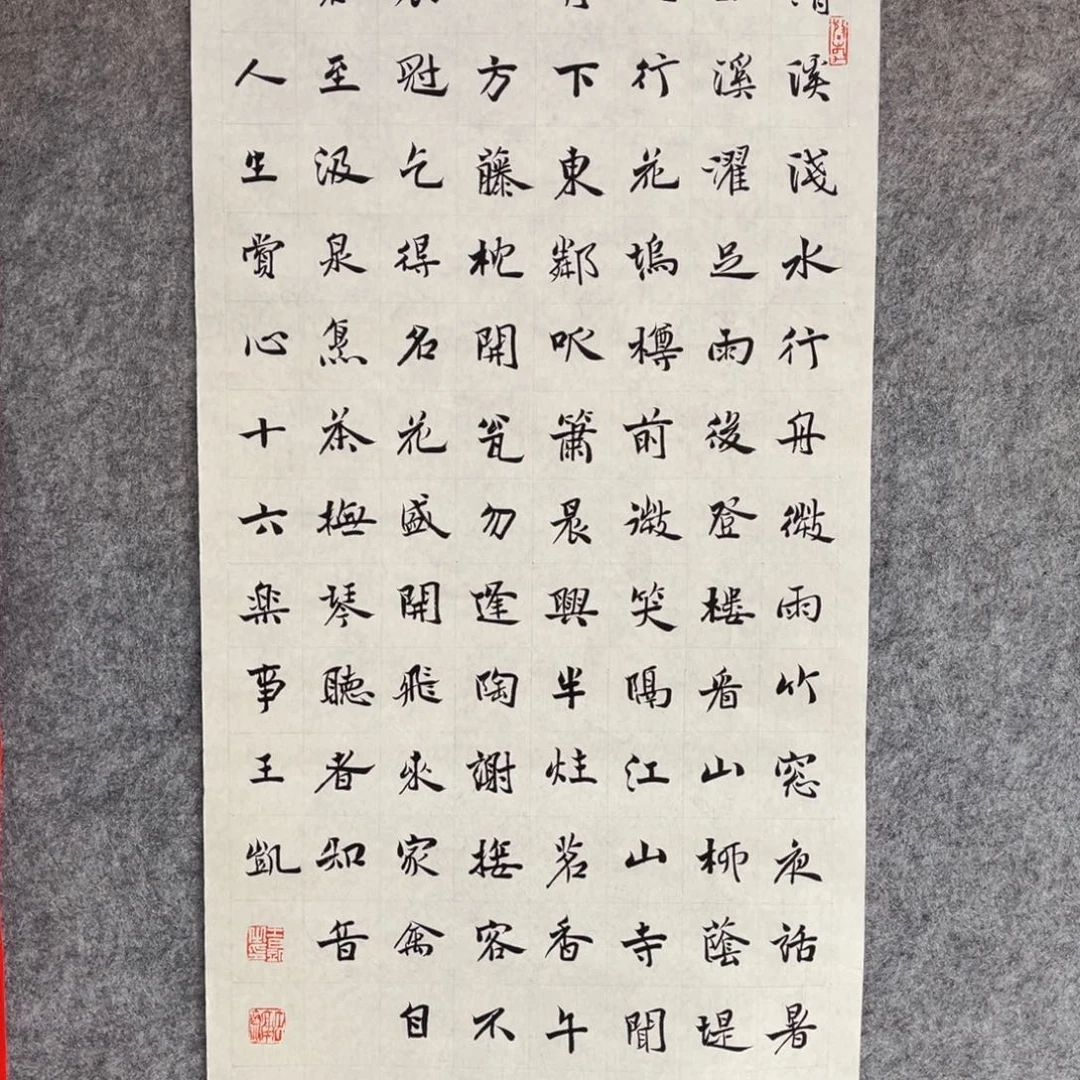 溪淺水行舟微雨竹窓夜話暑
溪濯足雨後登楼看山柳蔭堤
行花塢樽前微笑隔江山寺聞
下東鄰吹簫晨興半炷茗香午
方藤枕開瓮勿逢陶謝接客不
冠乞得名花盛開飛來家禽自
至汲泉烹茶撫琴聽者知音
人生賞心十六楽事王凱